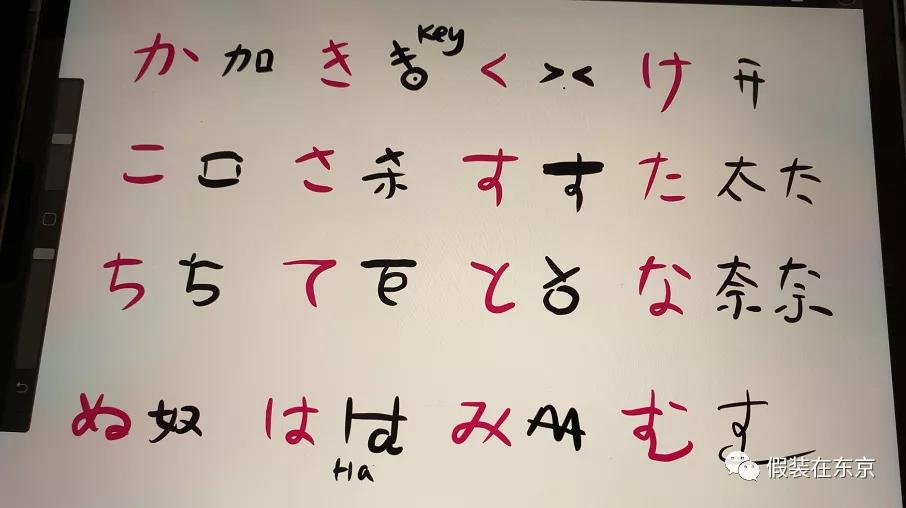 か 加 き き key く > < け 开
こ 口 さ 杀 す す た 太 た
ち ち て て と と な 奈 な
ぬ 奴 は は Ha み AA む す
假装在东京